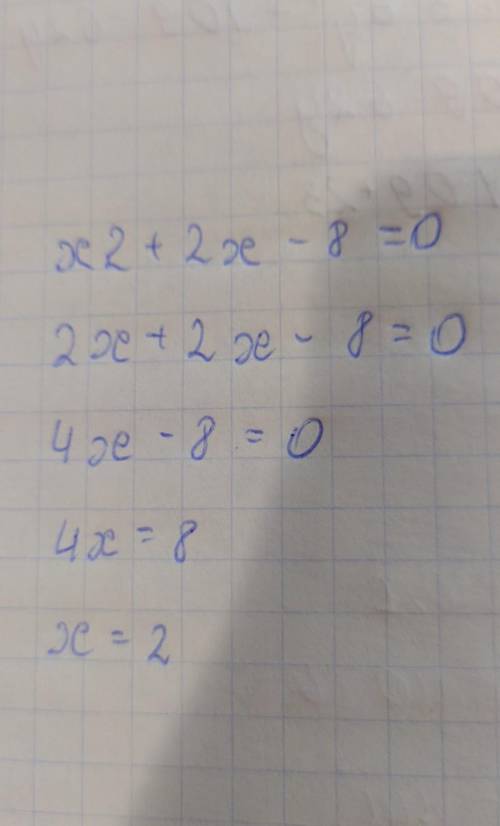 x2 + 2x - 8 = 0
2x + 2x - 8 = 0
4x - 8 = 0
4x = 8
x = 2